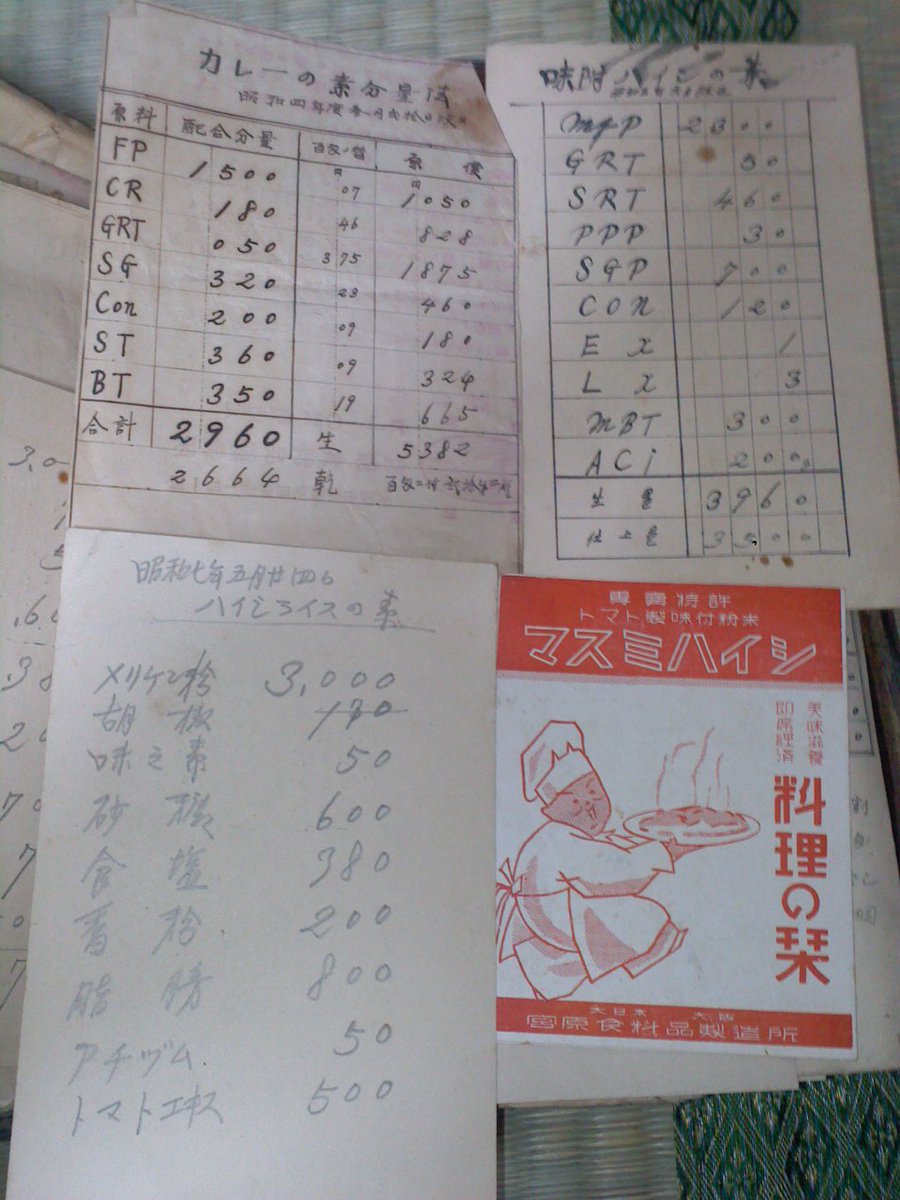 カレーの素分量法
原料 配合分量 百匁ノ價 原價
FP 1500 07 1050
CR 180 46 828
GRT 050 375 1875
SG 320 23 460
Con 200 09 180
ST 360 09 324
BT 350 19 665
合計 2960 生 5382
2664 乾
味附ハイシの素
GRT 50
SRT 460
PPP 30
SGP 700
CON 120
E x 1
L x 3
MBT 300
ACi 200
生量 3960
仕上量
昭和七年五月廿四日
ハイシライスの素
メリケン粉 3,000
胡椒
味之素 50
砂糖 600
食塩 380
200
800
アチヅム 50
トマトエキス 500
專賣特許
トマト製味付粉末
マスミハイシ
美味滋養
即席経済
料理の栞
大日本 大阪
宮原食料品製造所